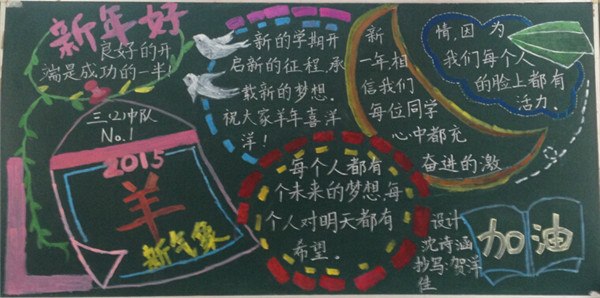 新年好
良好的开
端是成功的一半!
三(2)中队
No.1
2015
羊
新气象
新的学期开
启新的征程,承
载新的梦想.
祝大家羊年喜洋
洋!
每个人都有
个未来的梦想,每
个人对明天都有
希望.
新
一年,相
信我们
每位同学
心中都充
奋进的激
情,因为
我们每个人
的脸上都有
活力.
设计
沈诗涵
抄写:贺洋
佳
加油